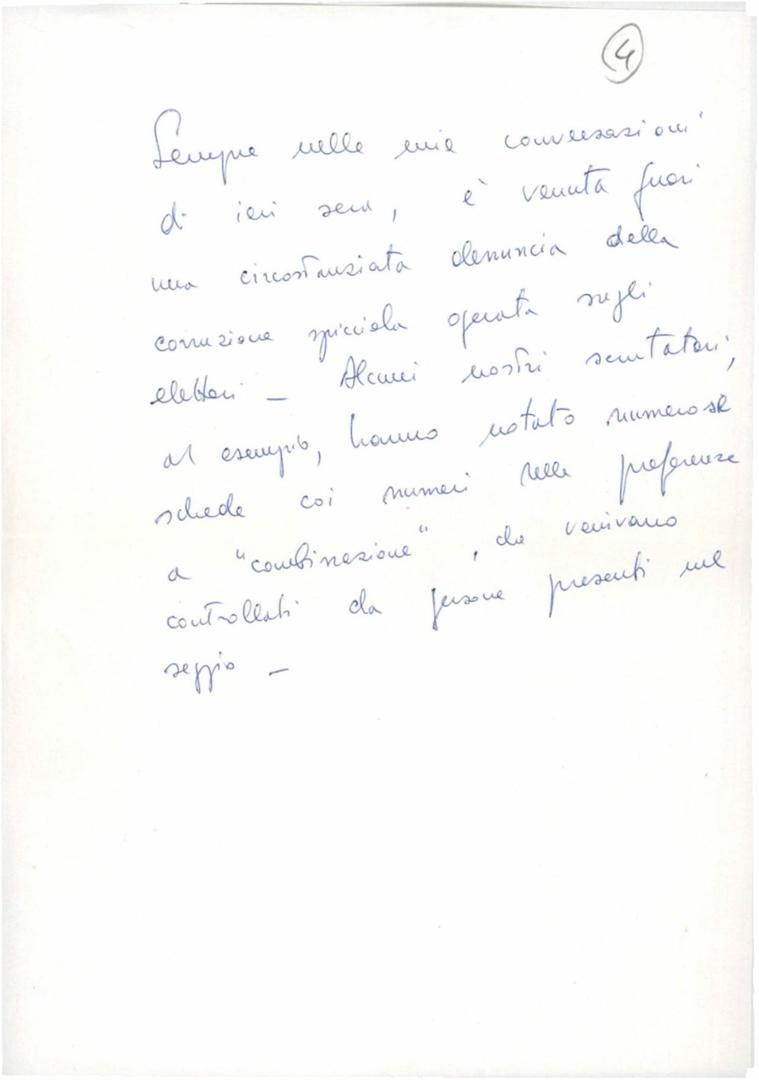 4
Sempre nelle mie conversazioni
di ieri sera, è venuta fuori
una circostanziata denuncia della
corruzione spicciola operata sugli
elettori – Alcuni nostri scrutatori,
al esempio, hanno notato numerose
schede coi numeri delle preferenze
a "combinazione", che venivano
controllati da persone presenti nel
seggio –